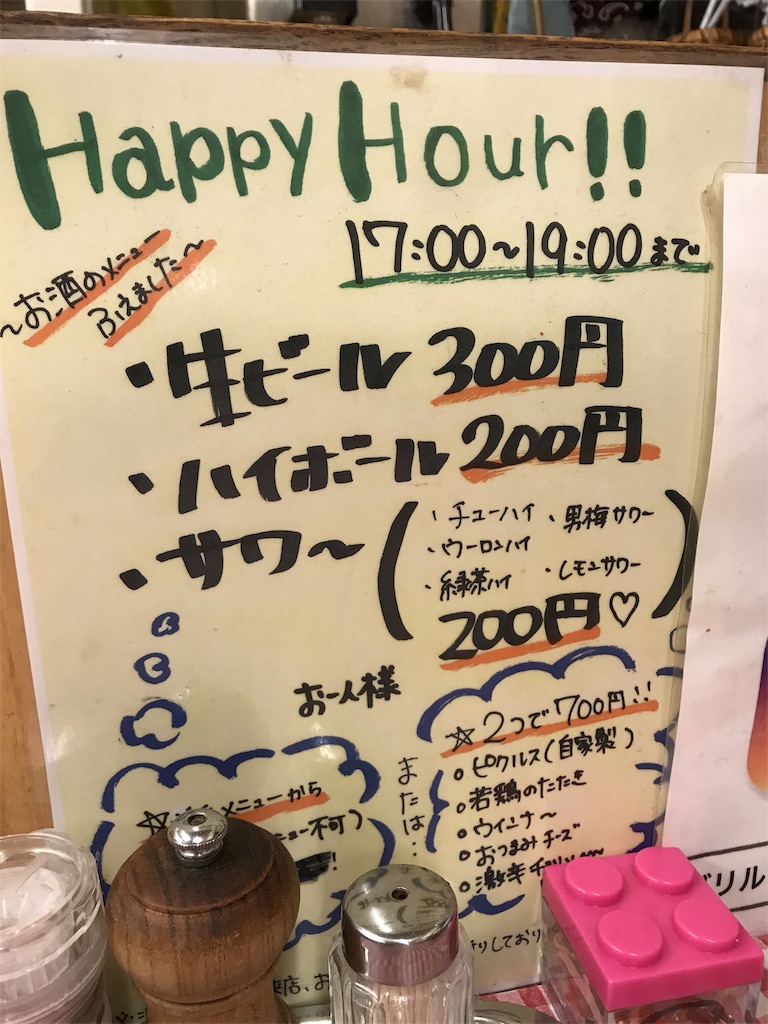 Happy Hour!!
17:00〜19:00まで
〜お酒のメニュー
ふえました〜
・生ビール 300円
・ハイボール 200円
・サワ〜
・チューハイ ・男梅サワー
・ウーロンハイ
・緑茶ハイ ・レモンサワー
200円♡
お一人様
☆2つで700円!!
○ピクルス(自家製)
○若鶏のたたき
○ウインナ〜
○おつまみチーズ
○激辛
または:
メニューから
ニュー不可)
しており
来店、お
リル